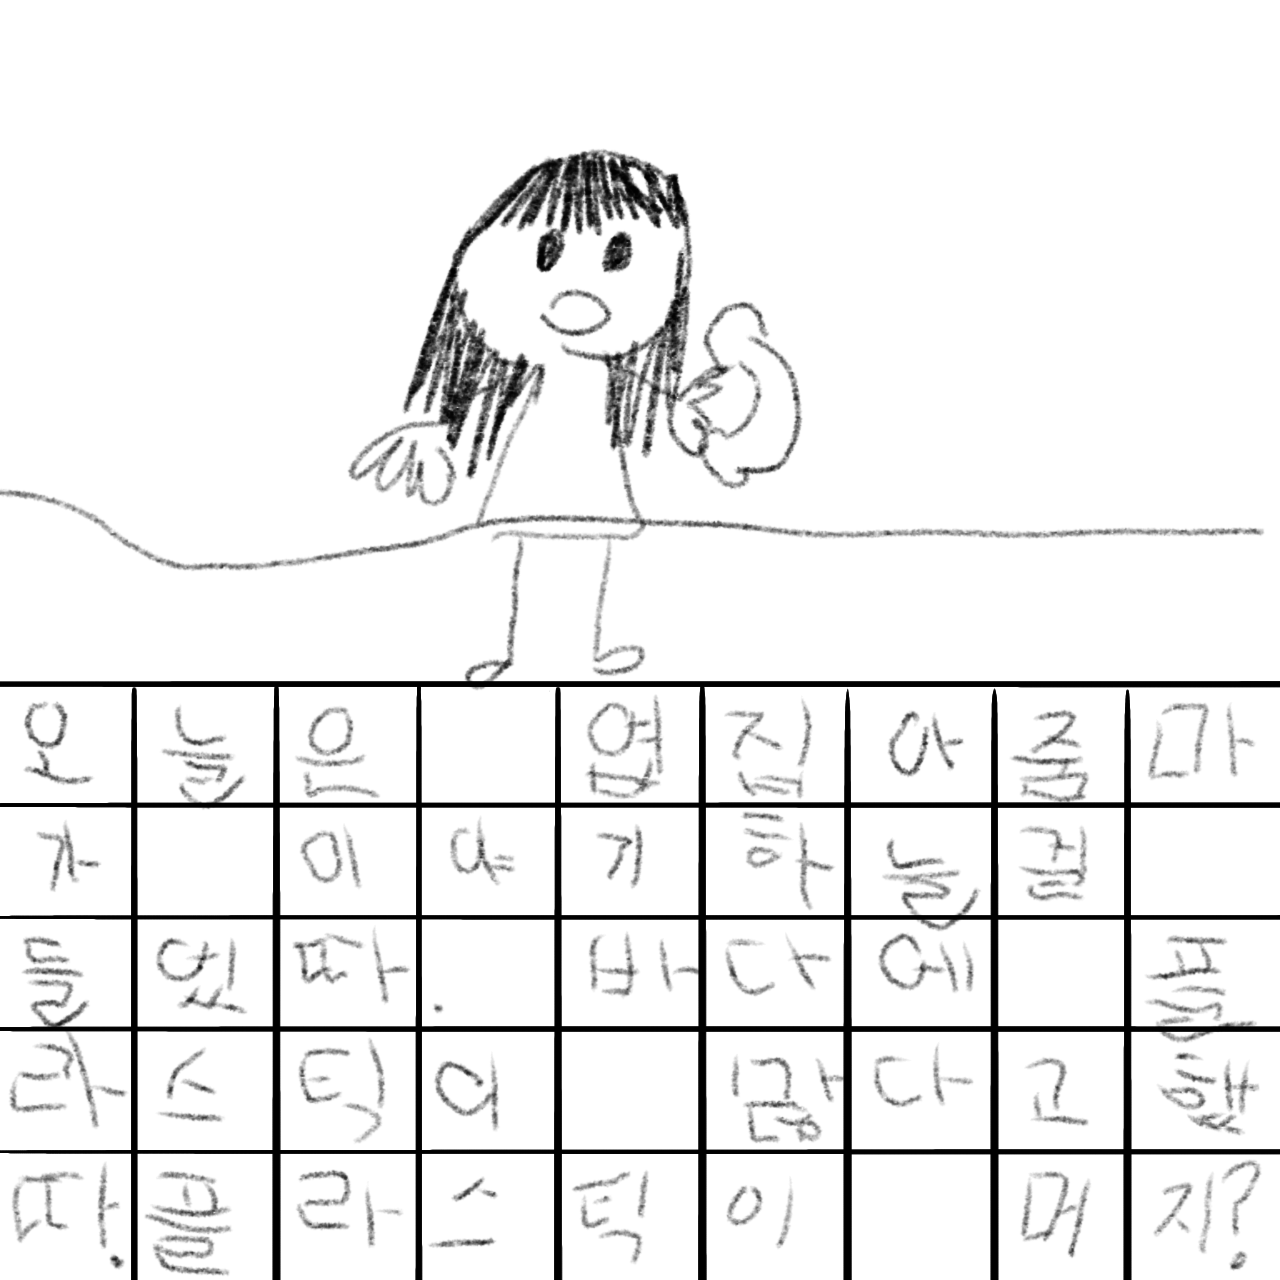 오늘은 엽집아줌마
가 이야기하늘걸
들엇따. 바다에 플
라스틱이 많다고햇
따.플라스틱이 머지?